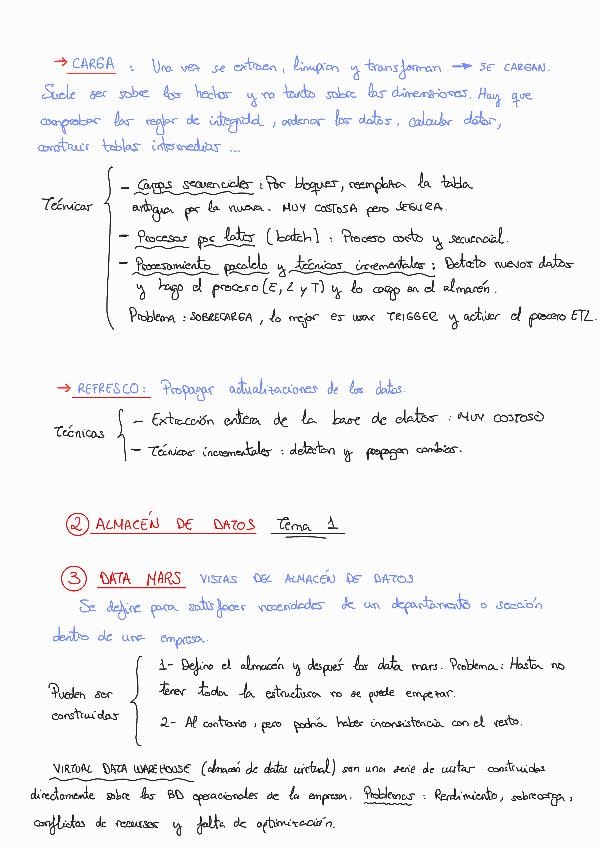 → CARGA : Una vez se extraen, limpian y transforman → SE CARGAN.
Suele ser sobre los hechos y no tanto sobre las dimensiones. Hay que
comprobar las reglas de integridd, ordenar los datos, calcular datos,
construir tablas intermedias ...
Técnicas
- Cargas secuenciales : Por bloques, reemplaza la tabla
antigua por la nueva. MUY COSTOSA pero SEGURA.
- Procesos por lotes (batch) : Proceso corto y secuencial.
- Procesamiento paralelo y técnicas incrementales : Detecto nuevos datos
y hago el proceso (E, L y T) y lo cargo en el almacén.
Problema : SOBRECARGA, lo mejor es usar TRIGGER y activar el proceso ETL.
→ REFRESCO : Propagar actualizaciones de los datos.
Técnicas
- Extracción entera de la base de datos : MUY COSTOSO
- Técnicas incrementales : detectan y propagan cambios.
2 ALMACÉN DE DATOS Tema 1
3 DATA MARS VISTAS DEL ALMACÉN DE DATOS
Se define para satisfacer necesidades de un departamento o sección
dentro de una empresa.
Pueden ser
construidas
1- Defino el almacén y después los data mars. Problema : Hasta no
tener toda la estructura no se puede empezar.
2- Al contrario, pero podría haber inconsistencia con el resto.
VIRTUAL DATA WAREHOUSE (almacén de datos virtual) son una serie de vistas construidas
directamente sobre las BD operacionales de la empresa. Problemas : Rendimiento, sobrecarga,
conflictos de recursos y falta de optimización.